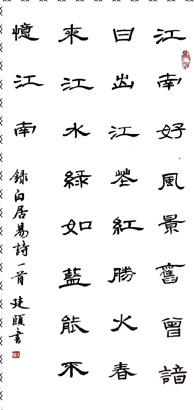 江南好風景舊曾諳
日出江花紅勝火春
來江水綠如藍能不
憶江南
錄白居易詩一首 頤書